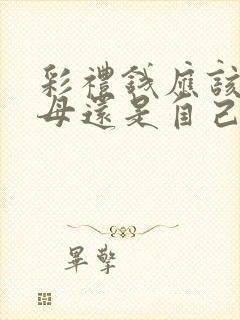 彩禮錢應該
母還是自己
畢擎